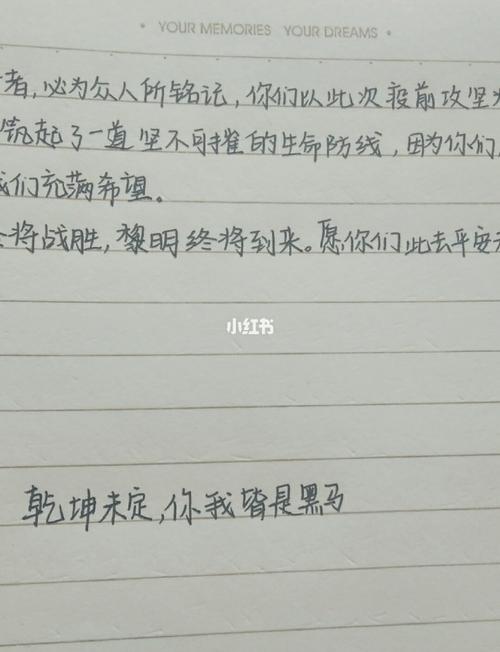 • YOUR MEMORIES YOUR DREAMS •
者,必为众人所铭记,你们以此次疫前攻坚
筑起了一道坚不可摧的生命防线,因为你们
我们充满希望。
将战胜,黎明终将到来。愿你们此去平安
小红书
乾坤未定,你我皆是黑马